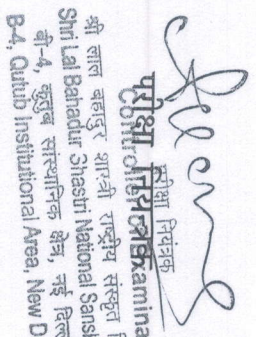 परीक्षा नियंत्रक
परीक्षा नियंत्रक
Controller
Examina
श्री लाल बहादुर शास्त्री राष्ट्रीय संस्कृत
Shri Lal Bahadur Shastri National Sansk
बी-4, कुतुब संस्थानिक क्षेत्र, नई दिल्ल
B-4, Qutub Institutional Area, New D